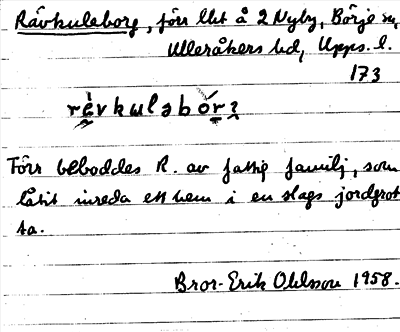 Rävkuleborg, förr llht å 2 Nyby, Börje sn,
Ulleråkers hd, Upps. l.
173
rèvkuləbór̯ʒ
Förr beboddes R. av fattig familj, som
låtit inreda ett hem i en slags jordgrot
ta.
Bror-Erik Ohlsson 1958.